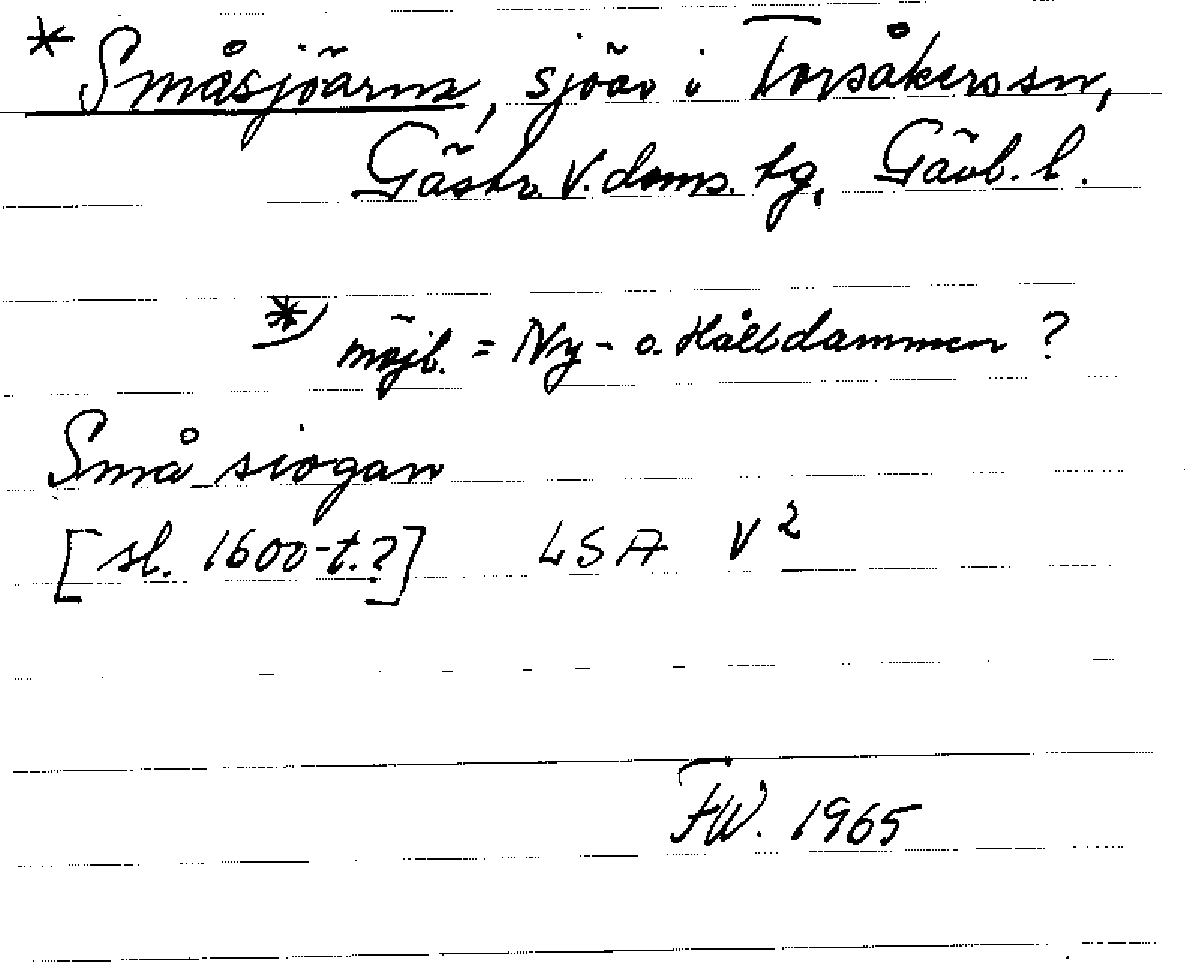 * Småsjöarna, sjöar i Torsåkers sn,
Gästr. V. doms. tg, Gävl. l.
*) möjl. = Ny- o. Hålldammen ?
Små siögan
[sl. 1600-t.?] LSA V 2
FW. 1965